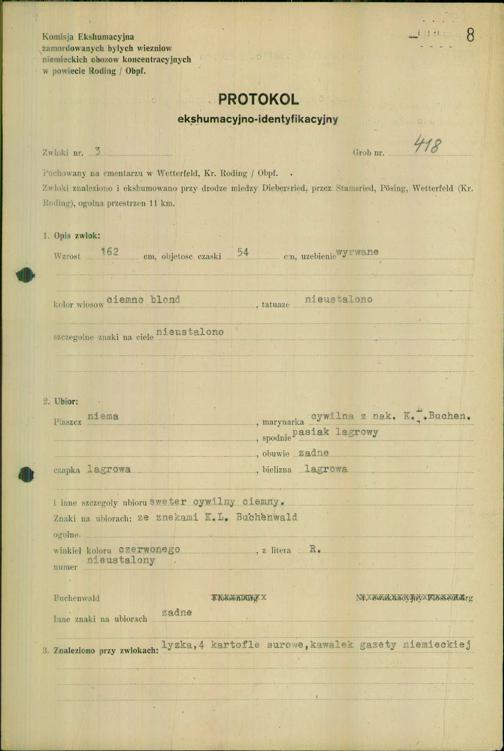 8
Komisja Ekshumacyjna
zamordowanych bylych wiezniow
niemieckich obozow koncentracyjnych
w powiecie Roding / Obpf.
PROTOKOL
ekshumacyjno-identyfikacyjny
Zwloki nr. 3 Grob nr. 418
Pochowany na cmentarzu w Wetterfeld, Kr. Roding / Obpf.
Zwloki znaleziono i ekshumowano przy drodze miedzy Diebersried, przez Stamsried, Pösing, Wetterfeld (Kr.
Roding), ogolna przestrzen 11 km.
1. Opis zwlok:
Wzrost 162 cm, objetosc czaski 54 cm, uzebienie wyrwane
kolor wlosow ciemno blond , tatuaze nieustalono
szczegolne znaki na ciele nieustalono
2. Ubior:
Plaszcz niema , marynarka cywilna z nak. K.L.Buchen.
, spodnie pasiak lagrowy
, obuwie zadne
czapka lagrowa , bielizna lagrowa
i inne szczegoly ubioru sweter cywilny ciemny.
Znaki na ubiorach: ze znekami K.L. Buchenwald
ogolne
winkiel koloru czerwonego , z litera R.
numer nieustalony
Buchenwald
Inne znaki na ubiorach zadne
3. Znaleziono przy zwlokach: lyzka,4 kartofle surowe,kawalek gazety niemieckiej